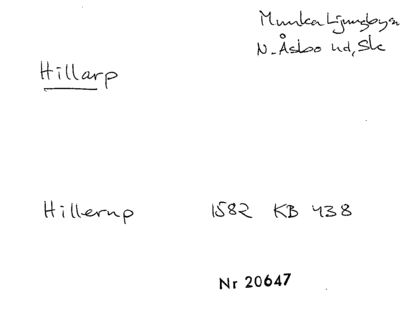 Munka Ljungby sn
N. Åsbo hd, Sk
Hillarp
Hillerup 1582 KB 438
Nr 20647